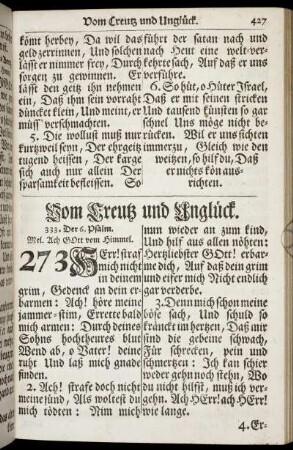 Vom Creutz und Unglück. 427
kömt herbey, Da wil das
geld zerrinnen, Und solchen
lässt er nimmer frey, Durch
sorgen zu gewinnen. Er
lässt den geitz ihn nehmen
ein, Daß ihm sein vorraht
düncket klein, Und meint, er
müss' verschmachten.
5. Die wollust muß nur
kurtzweil seyn, Der ehrgeitz
tugend heissen, Der karge
auch nur allein Der
sparsamkeit befleissen. So
führt der satan nach und
nach Heut eine welt-ver-
kehrte sach, Auf daß er uns
verführe.
6. So hüt, o Hüter Israel,
Daß er mit seinen stricken
Und tausend künsten so gar
schnel Uns möge nicht be-
rücken. Wil er uns sichten
immerzu, Gleich wie den
weitzen, so hilf du, Daß
er nichts kön aus-
richten.
Vom Creutz und Unglück.
333. Der 6. Psalm.
Mel. Ach GOtt vom Himmel.
273 HErr! straf
mich nicht
in deinem
grim, Gedenck an dein er-
barmen: Ach! höre meine
jammer-stim, Errette bald
mich armen: Durch deines
Sohns hochtheures blut
Wend ab, o Vater! deine
ruht Und laß mich gnade
finden.
2. Ach! strafe doch nicht
vermeine sünd, Als woltest du
mich tödten: Nim mich
nun wieder an zum kind,
Und hilf aus allen nöhten:
Hertzliebster GOtt! erbar-
me dich, Auf daß dein grim
und eifer mich Nicht endlich
gar verderbe.
3. Denn mich schon meine
böse sach, Und schuld so
kränckt im hertzen, Daß mir
sind die gebeine schwach,
Für schrecken, pein und
schmertzen: Ich kan schier
weder gehn noch stehn, Wo
du nicht hilfst, muß ich ver-
gehn. Ach HErr! ach HErr!
wie lange.
4. Er-